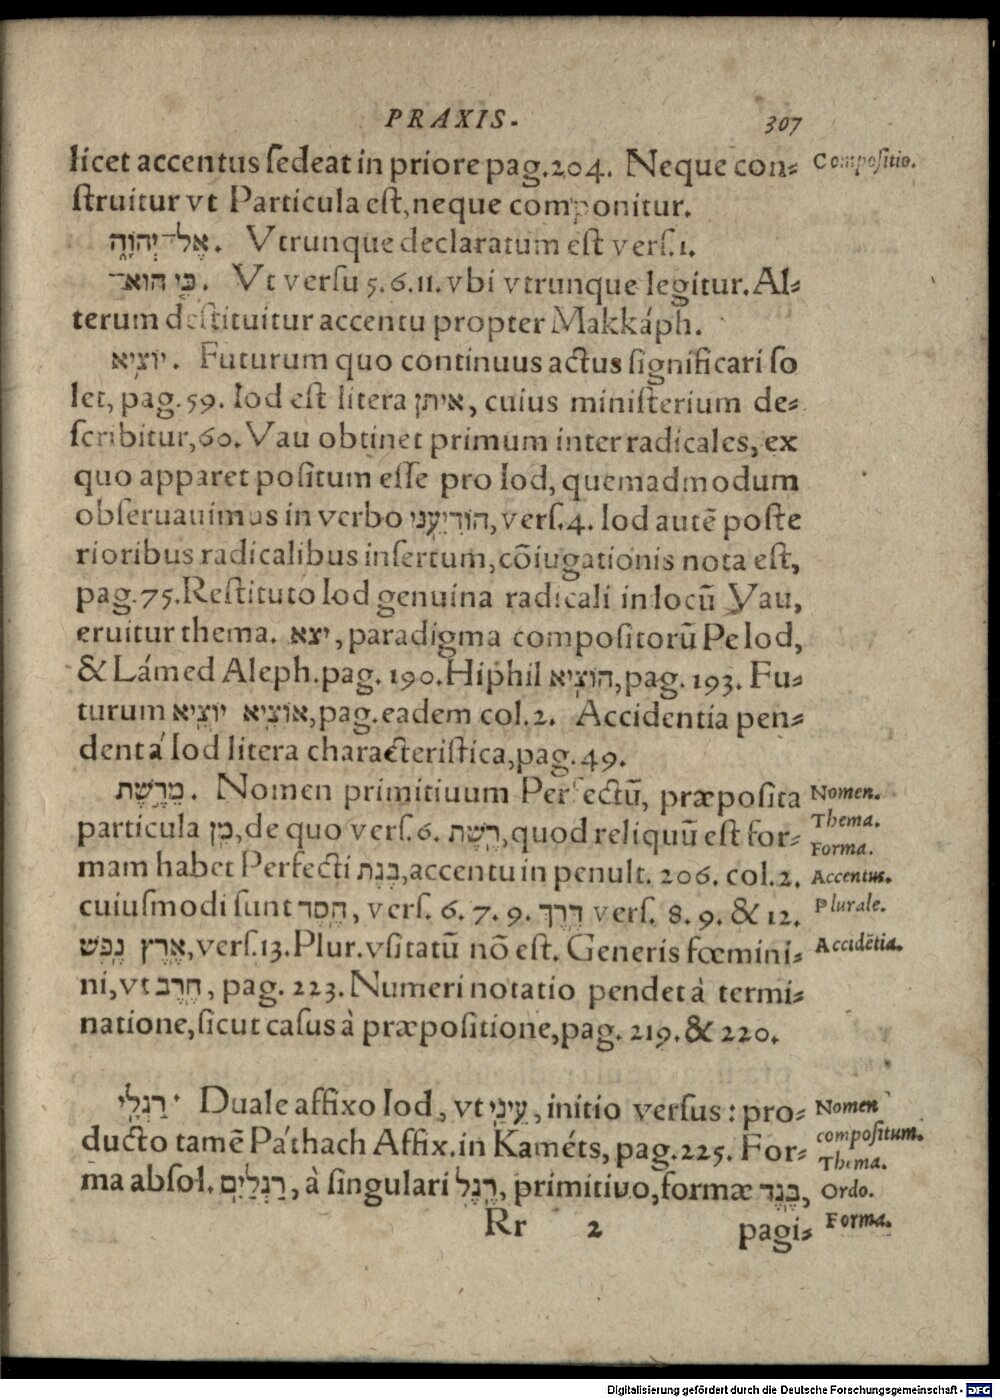 PRAXIS. 307
licet accentus sedeat in priore pag. 204. Neque con= Compositio.
struitur vt Particula est, neque componitur.
אֶל־יְהוָֹה. Vtrunque declaratum est vers. 1.
כִּי הוּא־. Vt versu 5. 6. 11. vbi vtrunque legitur. Al=
terum destituitur accentu propter Makkáph.
יוֹצִיא. Futurum quo continuus actus significari so
let, pag. 59. Iod est litera איתן, cuius ministerium de=
scribitur, 60. Vau obtinet primum inter radicales, ex
quo apparet positum esse pro Iod, quemadmodum
obseruauimus in verbo הוֹדִיעֵנִי, vers. 4. Iod autē poste
rioribus radicalibus insertum, cōiugationis nota est,
pag. 75. Restituto Iod genuina radicali in locū Vau,
eruitur thema. יצא, paradigma compositorū Pe Iod,
& Lámed Aleph. pag. 190. Hiphil הוֹצִיא, pag. 193. Fu=
turum אוֹצִיא יוֹצִיא, pag. eadem col. 2. Accidentia pen=
dent á Iod litera characteristica, pag. 49.
מֵרֶשֶׁת. Nomen primitiuum Perfectū, præposita Nomen.
particula מִן, de quo vers. 6. רֶשֶׁת, quod reliquū est for= Thema. Forma.
mam habet Perfecti בֶּגֶת, accentu in penult. 206. col. 2. Accentus.
cuiusmodi sunt חֶסֶד, vers. 6. 7. 9. דֶּרֶךְ vers. 8. 9. & 12. Plurale.
אֶרֶץ נֶפֶשׁ, vers. 13. Plur. vsitatū nō est. Generis fœmini= Accidētia.
ni, vt חֶרֶב, pag. 223. Numeri notatio pendet à termi=
natione, sicut casus à præpositione, pag. 219. & 220.
רַגְלָי Duale affixo Iod, vt עֵינַי, initio versus: pro= Nomen
ducto tamē Páthach Affix. in Kaméts, pag. 225. For= compositum. Thema.
ma absol. רַגְלַיִם, à singulari רֶגֶל, primitiuo, formæ בֶּגֶד, Ordo.
Rr 2 pagi= Forma.
Digitalisierung gefördert durch die Deutsche Forschungsgemeinschaft - DFG